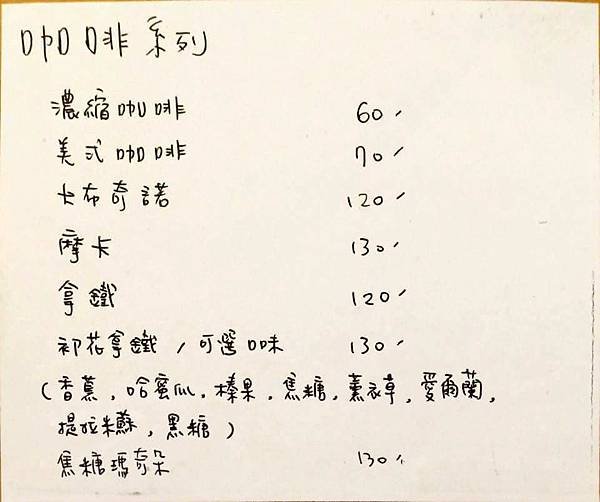 咖啡系列
濃縮咖啡 60
美式咖啡 70
卡布奇諾 120
摩卡 130
拿鐵 120
初花拿鐵 / 可選口味 130
(香蕉, 哈蜜瓜, 榛果, 焦糖, 薰衣草, 愛爾蘭,
提拉米蘇, 黑糖)
焦糖瑪奇朵 130